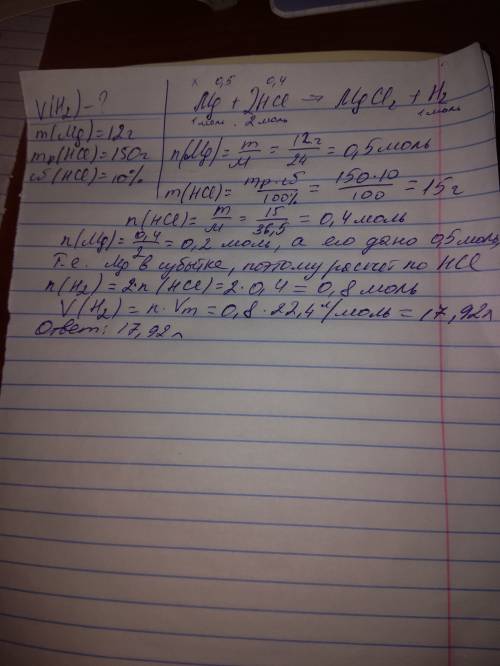 V(H₂) - ?
m(Mg) = 12г
mр(HCl) = 150г
ω(HCl) = 10%
x 0,5 0,4
Mg + 2HCl → MgCl₂ + H₂
1 моль 2 моль 1 моль
n(Mg) = m/M = 12г/24 = 0,5 моль
m(HCl) = mр·ω/100% = 150·10/100 = 15г
n(HCl) = m/M = 15/36,5 = 0,4 моль
n(Mg) = 0,4/2 = 0,2 моль, а его дано 0,5 моль,
т.е. Mg в избытке, поэтому расчет по HCl
n(H₂) = 2·n(HCl) = 2·0,4 = 0,8 моль
V(H₂) = n·Vm = 0,8·22,4 л/моль = 17,92л
Ответ: 17,92л